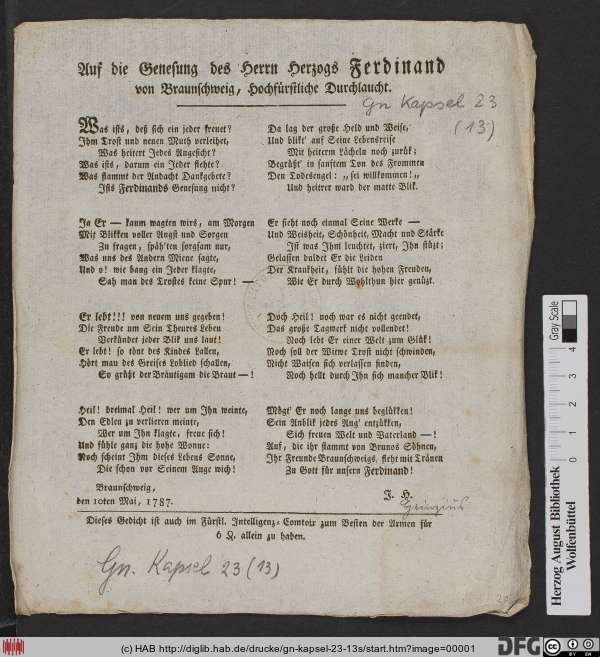 Auf die Genesung des Herrn Herzogs Ferdinand
von Braunschweig, Hochfürstliche Durchlaucht.
Gn Kapsel 23
(13)
Was ists, deß sich ein jeder freuet?
Ihm Trost und neuen Muth verleihet,
Was heitert Jedes Angesicht?
Was ists, darum ein Jeder flehte?
Was flammt der Andacht Dankgebete?
Ists Ferdinands Genesung nicht?
Ja Er — kaum wagten wirs, am Morgen
Mit Blikken voller Angst und Sorgen
Zu fragen, späh'ten sorgsam nur,
Was uns des Andern Miene sagte,
Und o! wie bang ein Jeder klagte,
Sah man des Trostes keine Spur! —
Er lebt!!! von neuem uns gegeben!
Die Freude um Sein Theures Leben
Verkündet jeder Blik uns laut!
Er lebt! so tönt des Kindes Lallen,
Hört man des Greises Loblied schallen,
So grüßt der Bräutigam die Braut —!
Heil! dreimal Heil! wer um Ihn weinte,
Den Edlen zu verlieren meinte,
Wer um Ihn klagte, freue sich!
Und fühle ganz die hohe Wonne:
Noch scheint Ihm dieses Lebens Sonne,
Die schon vor Seinem Auge wich!
Da lag der große Held und Weise,
Und blikt' auf Seine Lebensreise
Mit heiterm Lächeln noch zurük;
Begrüßt' in sanftem Ton des Frommen
Den Todesengel: „sei willkommen!„
Und heitrer ward der matte Blik.
Er sieht noch einmal Seine Werke —
Und Weisheit, Schönheit, Macht und Stärke
Ist was Ihm leuchtet, ziert, Ihn stüzt;
Gelassen duldet Er die Leiden
Der Krankheit, fühlt die hohen Freuden,
Wie Er durch Wohlthun hier genüzt.
Doch Heil! noch war es nicht geendet,
Das große Tagwerk nicht vollendet!
Noch lebt Er einer Welt zum Glük!
Noch soll der Witwe Trost nicht schwinden,
Nicht Waisen sich verlassen finden,
Noch hellt durch Ihn sich mancher Blik!
Mögt' Er noch lange uns beglükken!
Sein Anblik jedes Aug' entzükken,
Sich freuen Welt und Vaterland —!
Auf, die ihr stammt von Brunos Söhnen,
Ihr Freunde Braunschweigs, fleht mit Tränen
Zu Gott für unsern Ferdinand!
Braunschweig,
den 10ten Mai, 1787.
J. H.
Heinzius
Dieses Gedicht ist auch im Fürstl. Intelligenz-Comtoir zum Besten der Armen für
6 allein zu haben.
Gn. Kapsel 23 (13)
Gray Scale
1 2 3 4
Herzog August Bibliothek
Wolfenbüttel
(c) HAB http://diglib.hab.de/drucke/gn-kapsel-23-13s/start.htm?image=00001
DFG
cc BY SA